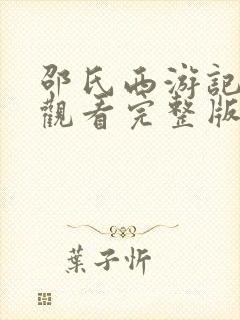 邵氏西游記
觀看完整版
葉子忻